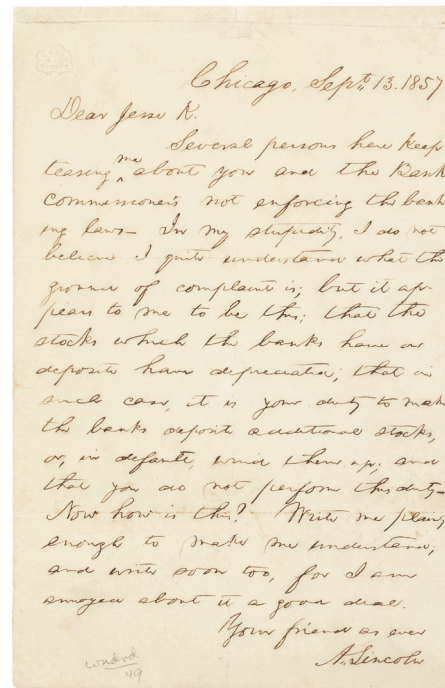 Chicago, Sept. 13. 1857
Dear Jesse K.
Several persons here keep
teasing me about you and the Bank
Commissioners not enforcing the bank
ing laws— In my stupidity, I do not
believe I quite understand what the
ground of complaint is; but it ap-
pears to me to be this; that the
stocks which the banks have on
deposite have depreciated; that in
such case, it is your duty to make
the banks deposite additional stocks,
or, in default, wind them up; and
that you do not perform this duty—
Now how is this? Write me plain
enough to make me understand,
and write soon too, for I am
annoyed about it a good deal.
Your friend as ever
A. Lincoln
49